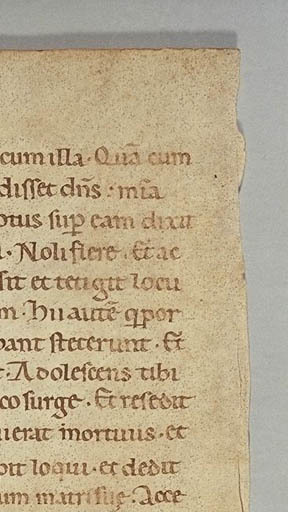 cum illa · Quā cum
disset dn̄s · mīa
otus sup̄ eam dixit
· Noli flere · Et ac
sit et tetigit locu
m · Hii autē q̨ por
bant steterunt · Et
t · Adolescens tibi
co surge · Et resedit
uerat mortuus · et
pit loqui · et dedit
um matri suę · Acce